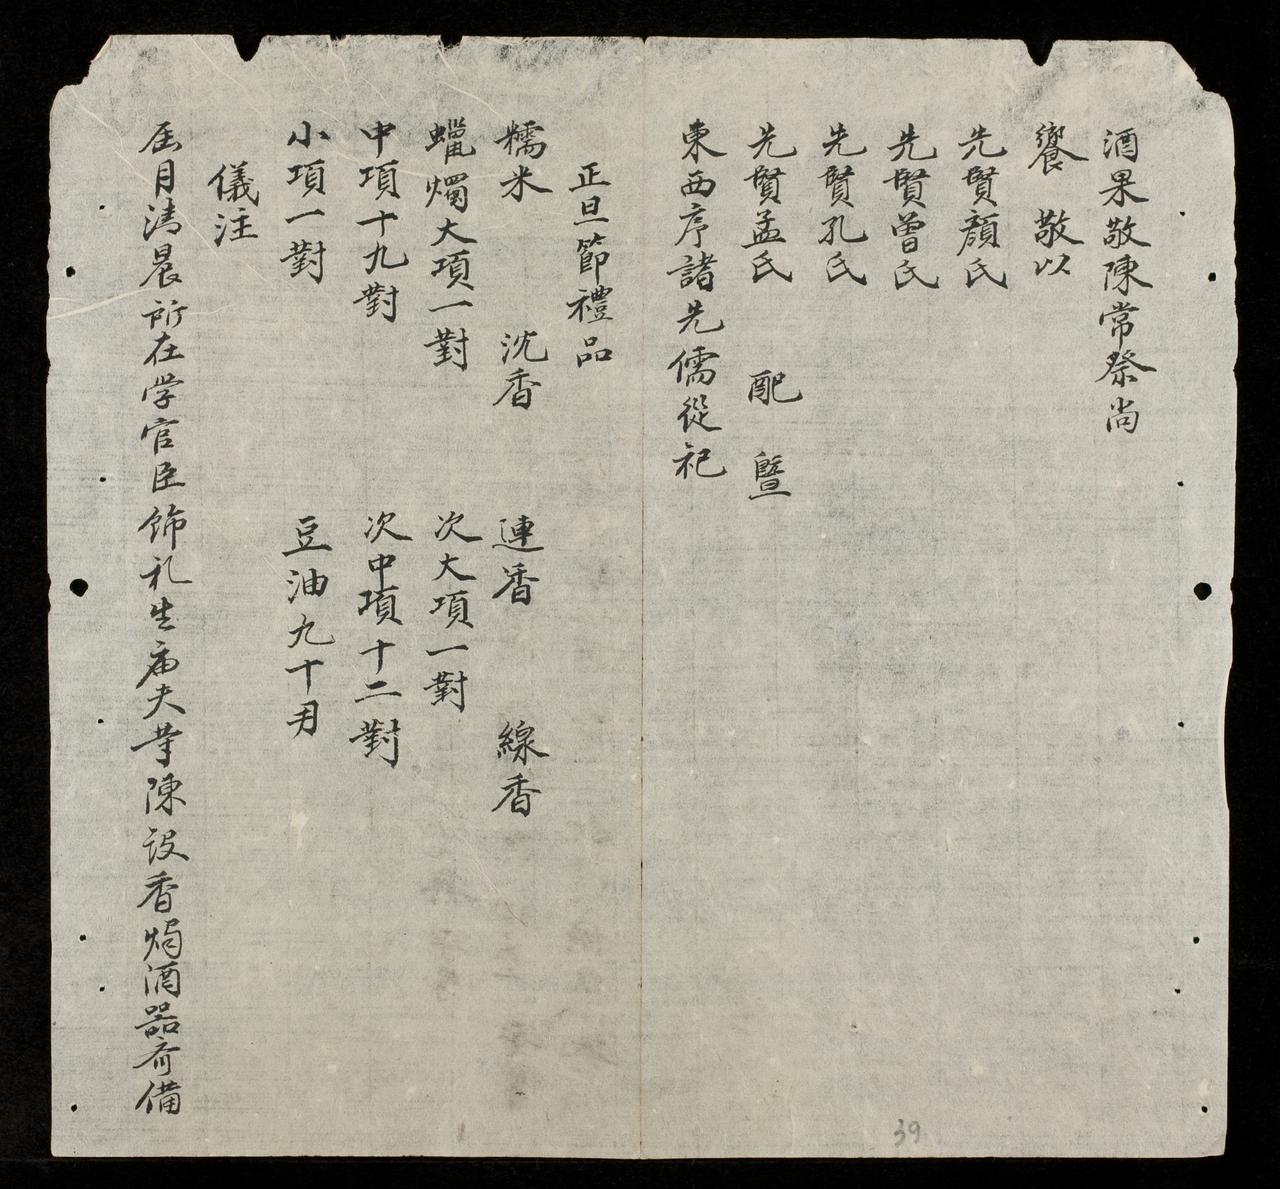 酒果敬陳常祭尚
饗　敬以
先賢顏氏
先賢曾氏
先賢孔氏
先賢孟氏　配　暨
東西序諸先儒從祀
正旦節禮品
糯米　沈香　連香　線香
蠟燭大項一對　次大項一對
中項十九對　次中項十二對
小項一對　豆油九十
儀注
屆月清晨所在学官臣飾礼生庙夫等陳設香焗酒器斉備
39